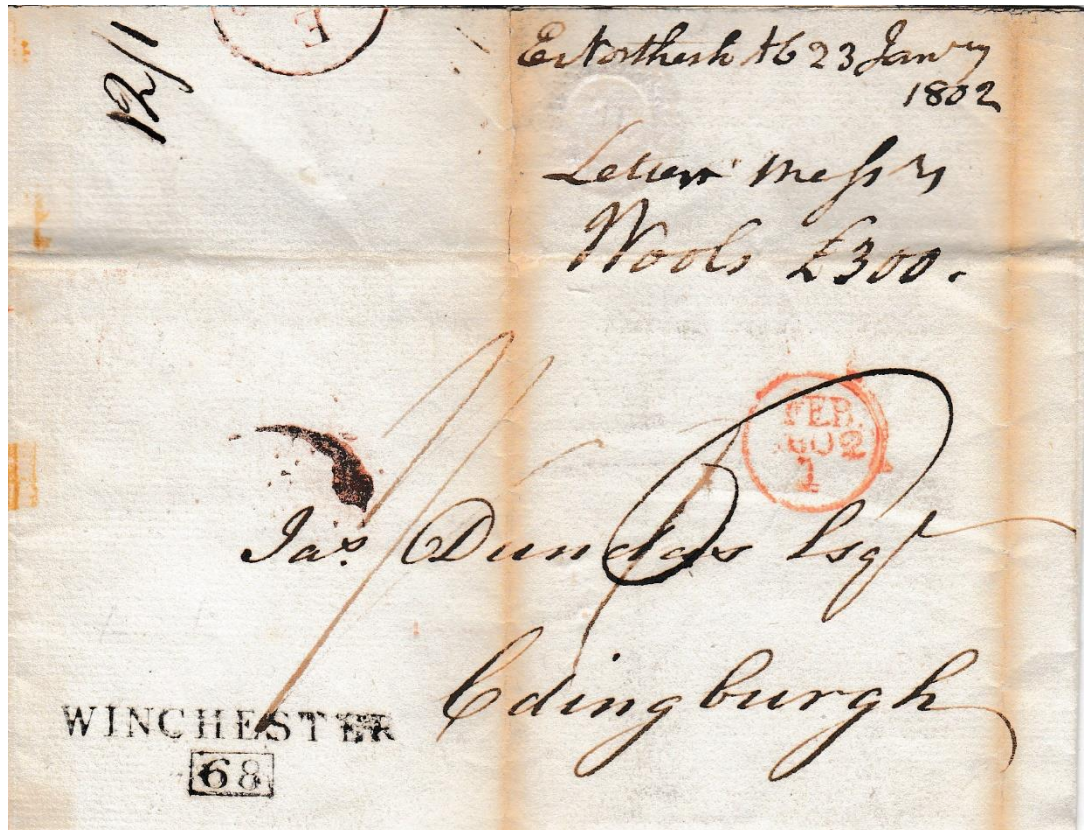 12/1
E
E. Northesk A6 23 Janry
1802
Letter Messrs
Wools £300.
FEB.
1802
1
Jas. Dundas Esqr
Edinburgh
WINCHESTER
68